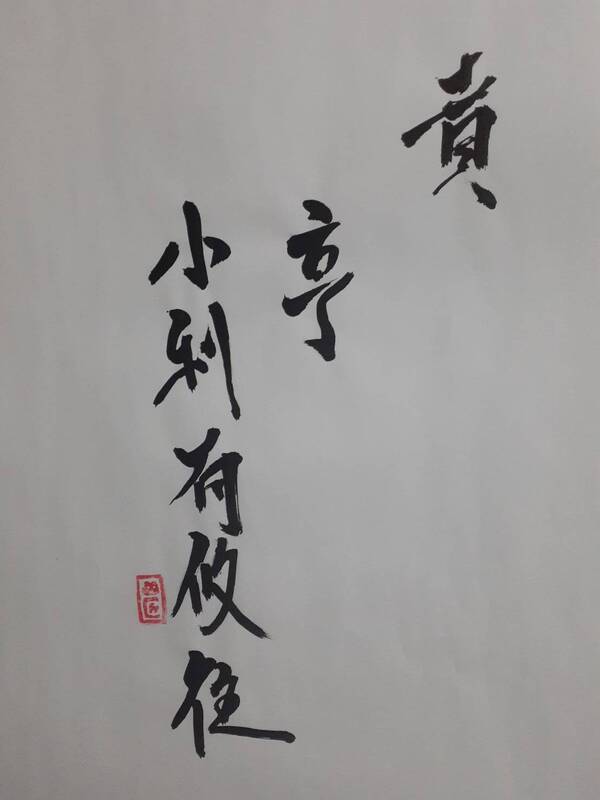 賁
亨
小利有攸往